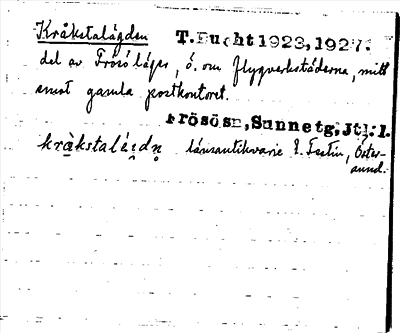 Kråkstalägden T. Bucht 1923, 1927.
del av Frösö läger, ö. om flygverkstäderna, mitt
emot gamla postkontoret.
Frösösn, Sunne tg, Jtl. l.
landsantikvarie E. Festin, Öster-
sund.